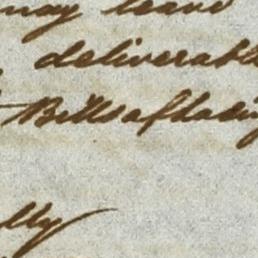 may leave
deliverabl
Bills of lading
lly